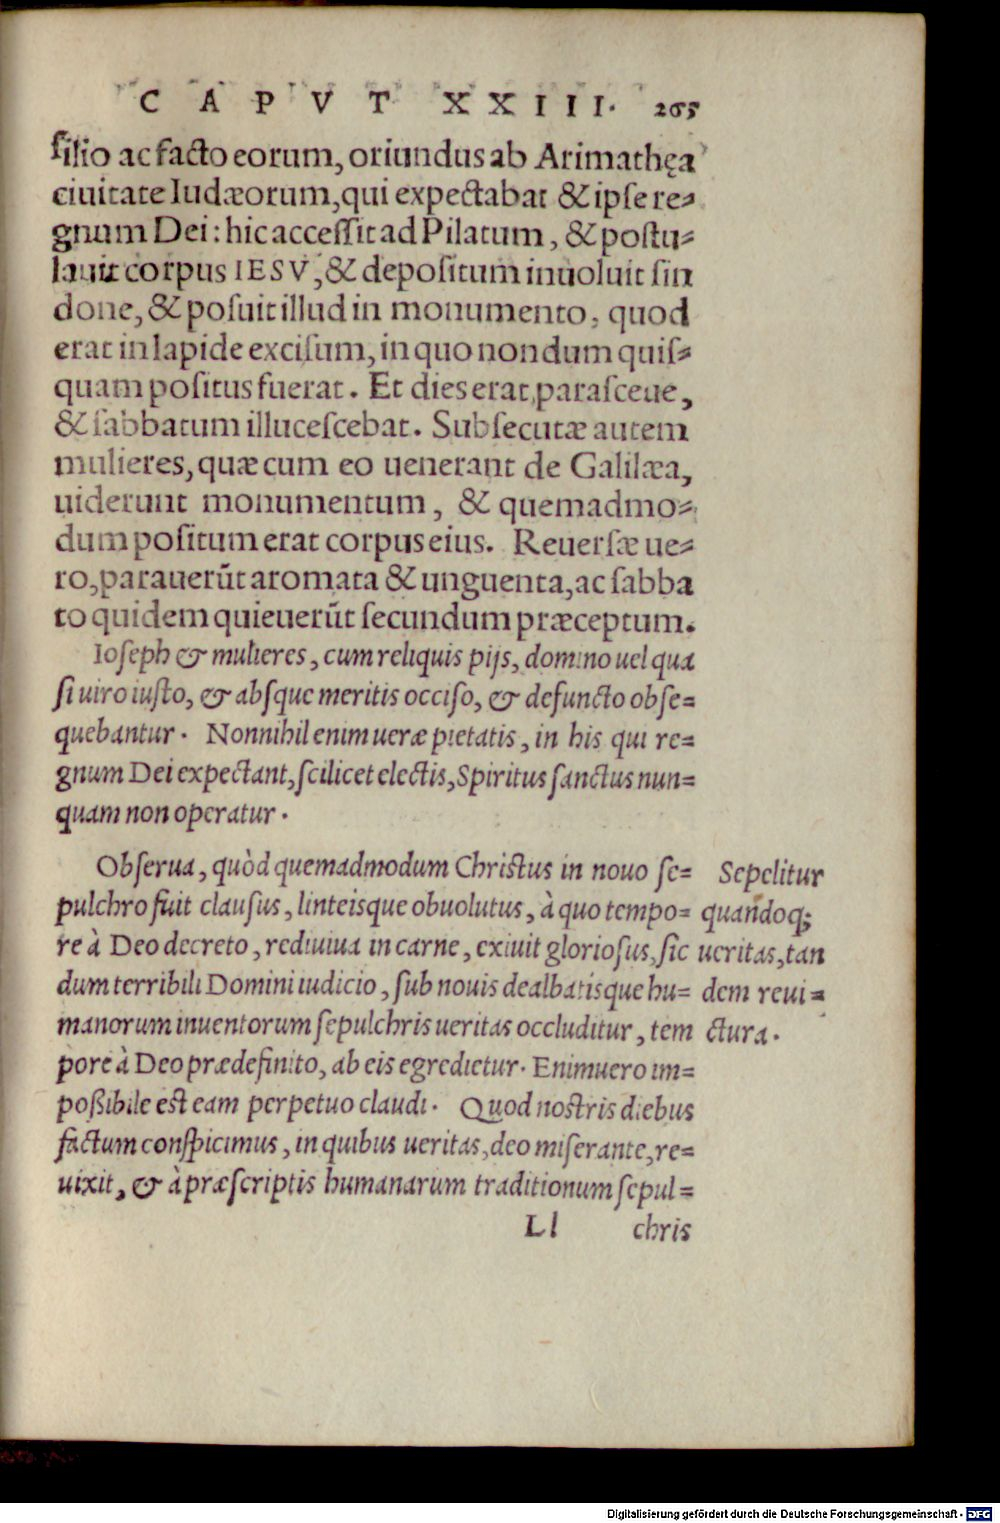 CAPVT XXIII. 265
silio ac facto eorum, oriundus ab Arimathęa
ciuitate Iudæorum, qui expectabat & ipse re-
gnum Dei: hic accessit ad Pilatum, & postu-
lauit corpus IESV, & depositum inuoluit sin
done, & posuit illud in monumento, quod
erat in lapide excisum, in quo nondum quis-
quam positus fuerat. Et dies erat parasceue,
& sabbatum illucescebat. Subsecutæ autem
mulieres, quæ cum eo uenerant de Galilæa,
uiderunt monumentum, & quemadmo-
dum positum erat corpus eius. Reuersæ ue-
ro, parauerũt aromata & unguenta, ac sabba
to quidem quieuerũt secundum præceptum.
Ioseph & mulieres, cum reliquis pijs, domino uel qua
si uiro iusto, & absque meritis occiso, & defuncto obse-
quebantur. Nonnihil enim ueræ pietatis, in his qui re-
gnum Dei expectant, scilicet electis, Spiritus sanctus nun-
quam non operatur.
Obserua, quòd quemadmodum Christus in nouo se-
pulchro fuit clausus, linteisque obuolutus, à quo tempo-
re à Deo decreto, rediuiua in carne, exiuit gloriosus, sic
dum terribili Domini iudicio, sub nouis dealbatisque hu-
manorum inuentorum sepulchris ueritas occluditur, tem
pore à Deo prædefinito, ab eis egredietur. Enimuero im-
poßibile est eam perpetuo claudi. Quod nostris diebus
factum conspicimus, in quibus ueritas, deo miserante, re-
uixit, & à præscriptis humanarum traditionum sepul-
Ll chris
Sepelitur
quandoq;
ueritas, tan
dem reui-
ctura.
Digitalisierung gefördert durch die Deutsche Forschungsgemeinschaft - DFG